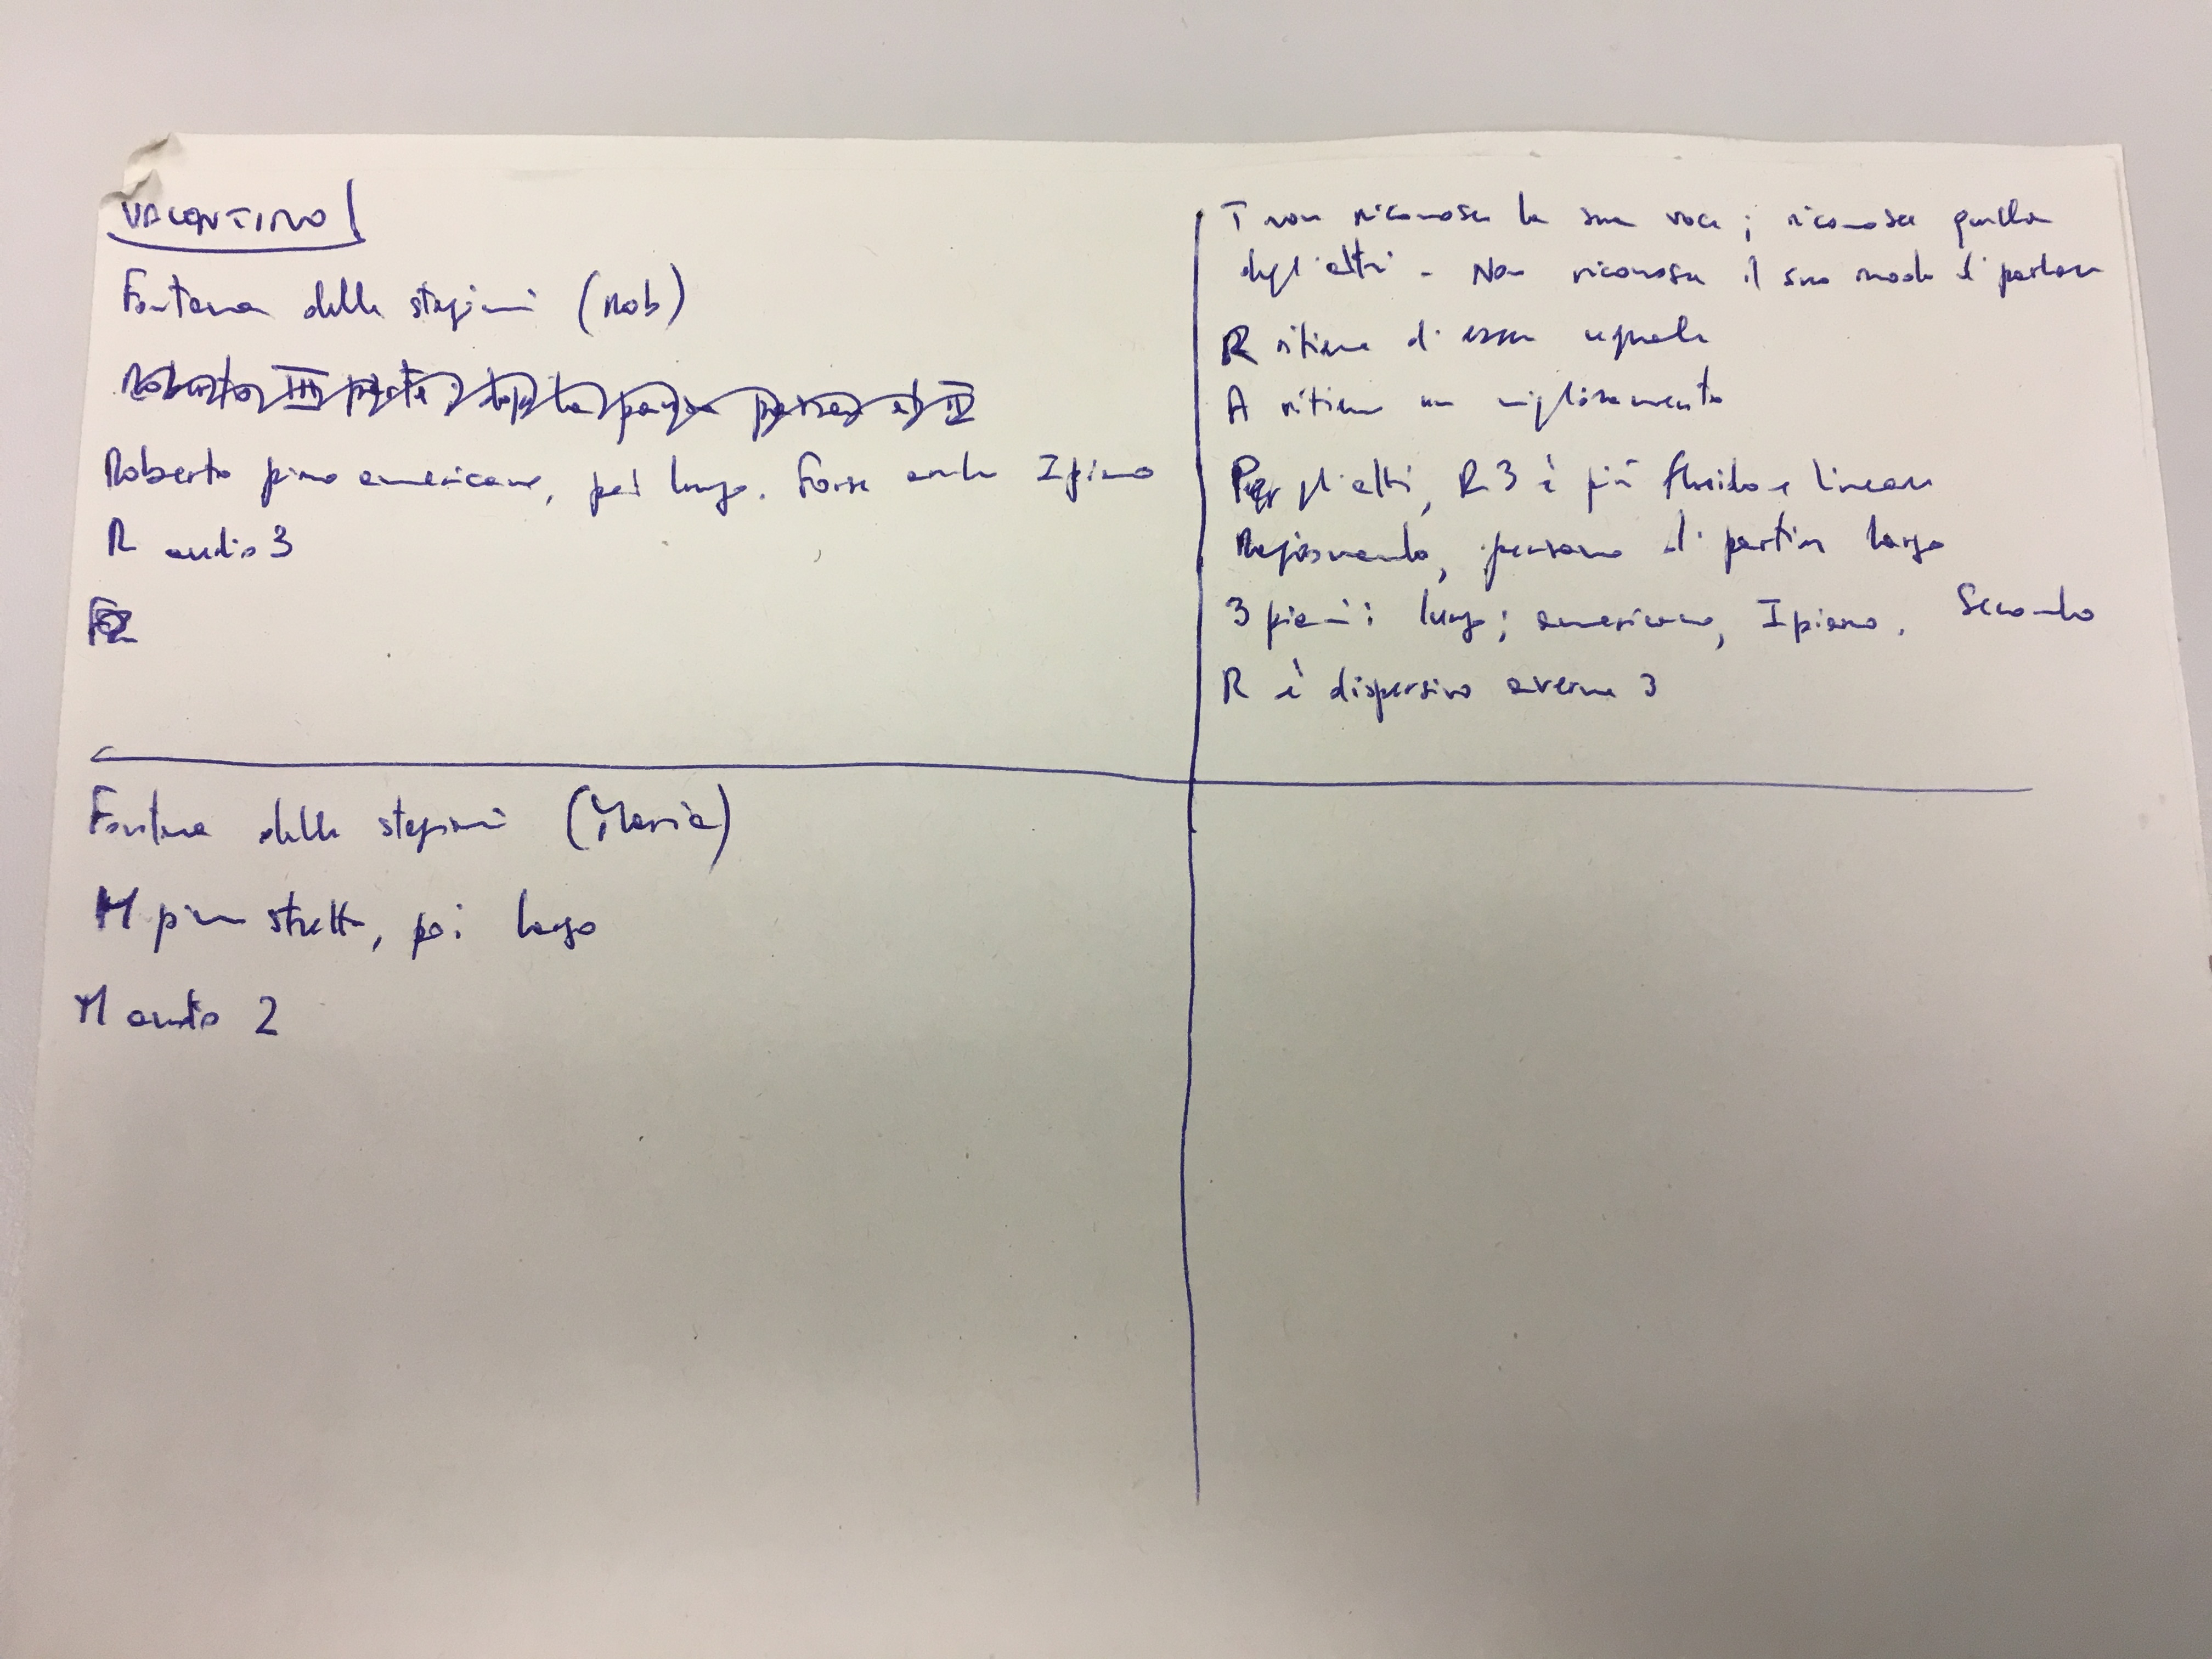 VALENTINO
Fontana delle stagioni (Rob)
Roberto III parte, dopo la pausa passa al IV
Roberto piano americano, poi lungo. Forse anche I piano
R audio 3
T non riconosce la sua voce; riconosce quella
degli altri - Non riconosce il suo modo di parlare
R ritiene di essere uguale
A ritiene un miglioramento
Per gli altri, R3 è più fluido e lineare
Ragionando, pensano di partire largo
3 piani: lungo; americano, I piano. Secondo
R è dispersivo averne 3
Fontana delle stagioni (Maria)
M piano stretto, poi largo
M audio 2